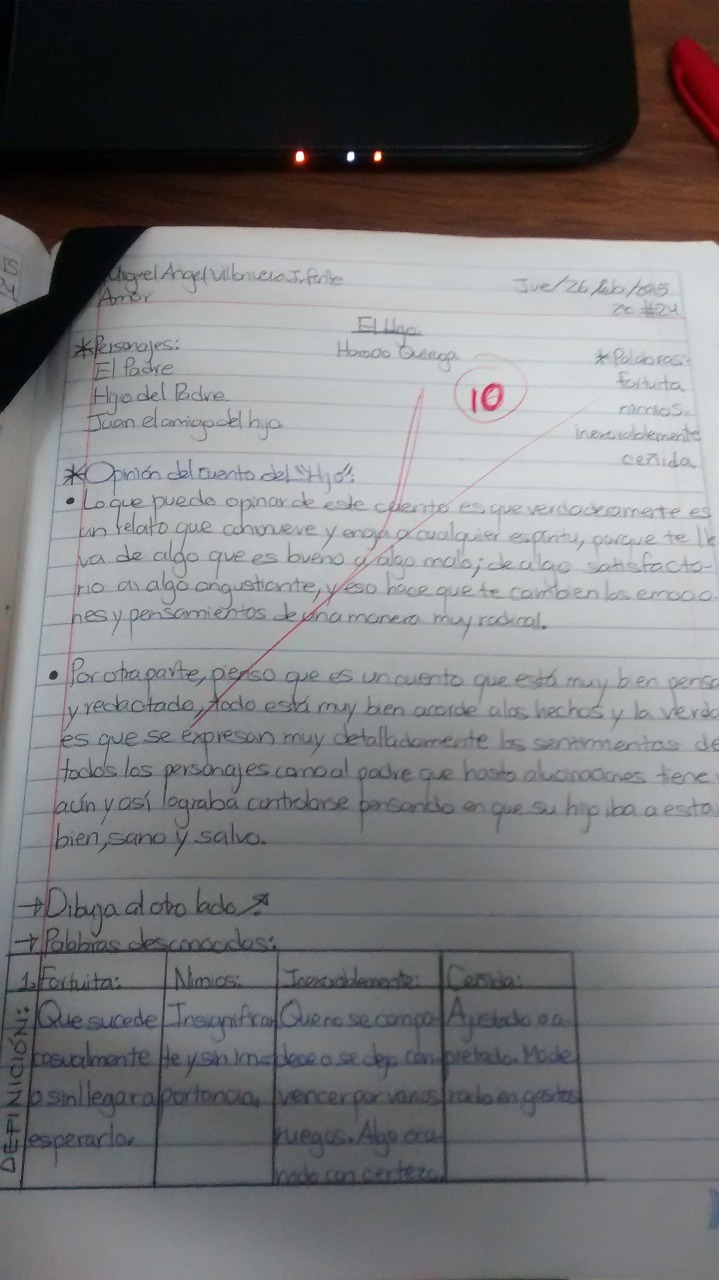 Miguel Angel Villanueva Infante
Jue/26/feb/2015
Amor
cc #24
El Hijo:
Horacio Quiroga
*Personajes:
El Padre
Hijo del Padre
Juan el amigo del hijo
10
*Palabras:
fortuita
nimios
inexorablemente
ceñida
*Opinión del cuento del "Hijo":
• Lo que puedo opinar de este cuento es que verdaderamente es
un relato que conmueve y a cualquier espíritu, porque te lle
va de algo que es bueno a algo malo; de algo satisfacto-
rio a algo angustiante, y eso hace que te cambien las emocio
nes y pensamientos de una manera muy radical.
• Por otra parte, pienso que es un cuento que está muy bien pensa
y redactado, todo está muy bien acorde a los hechos y la verda
es que se expresan muy detalladamente los sentimentos de
todos los personajes como al padre que hasta alucinaciones tiene
aún y así lograba controlarse pensando en que su hijo iba a esta
bien, sano y salvo.
→Dibuja al otro lado
→Palabras desconocidas:
1. Fortuita: Nimios: Inexorablemente: Ceñida:
DEFINICIÓN:
Que sucede
casualmente
o sin llegar a
esperarlo.
Insignifican
te y sin im-
portancia.
Que no se compa
dece o se deja con
vencer por varios
ruegos. Algo
con certeza
Ajustado o a-
pretado. Mode
rado en gastos